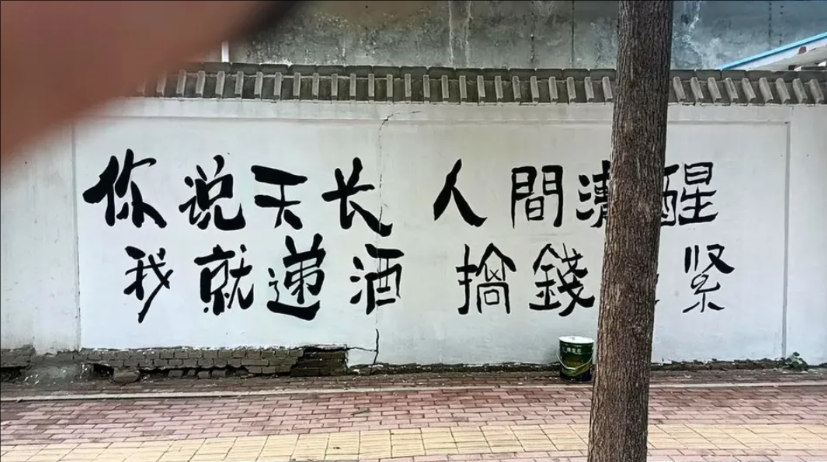 你说天长 人間清醒
我就递酒 擒錢 紧